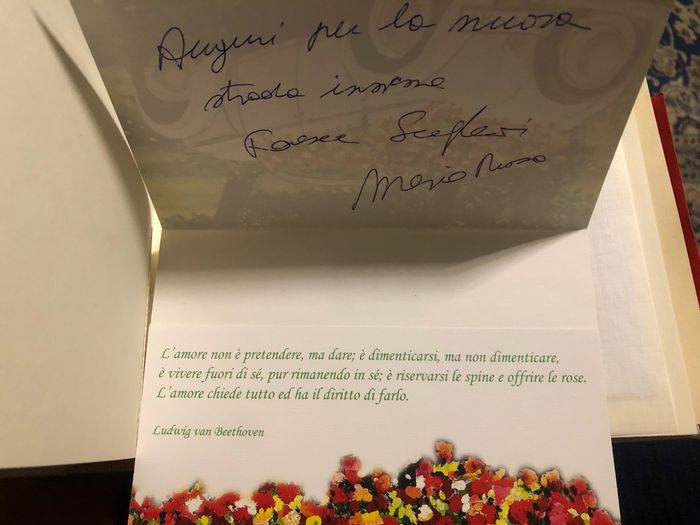 Auguri per la nuova
strada insieme
Mario Russo
L'amore non è pretendere, ma dare; è dimenticarsi, ma non dimenticare,
è vivere fuori di sé, pur rimanendo in sé; è riservarsi le spine e offrire le rose.
L'amore chiede tutto ed ha il diritto di farlo.
Ludwig van Beethoven